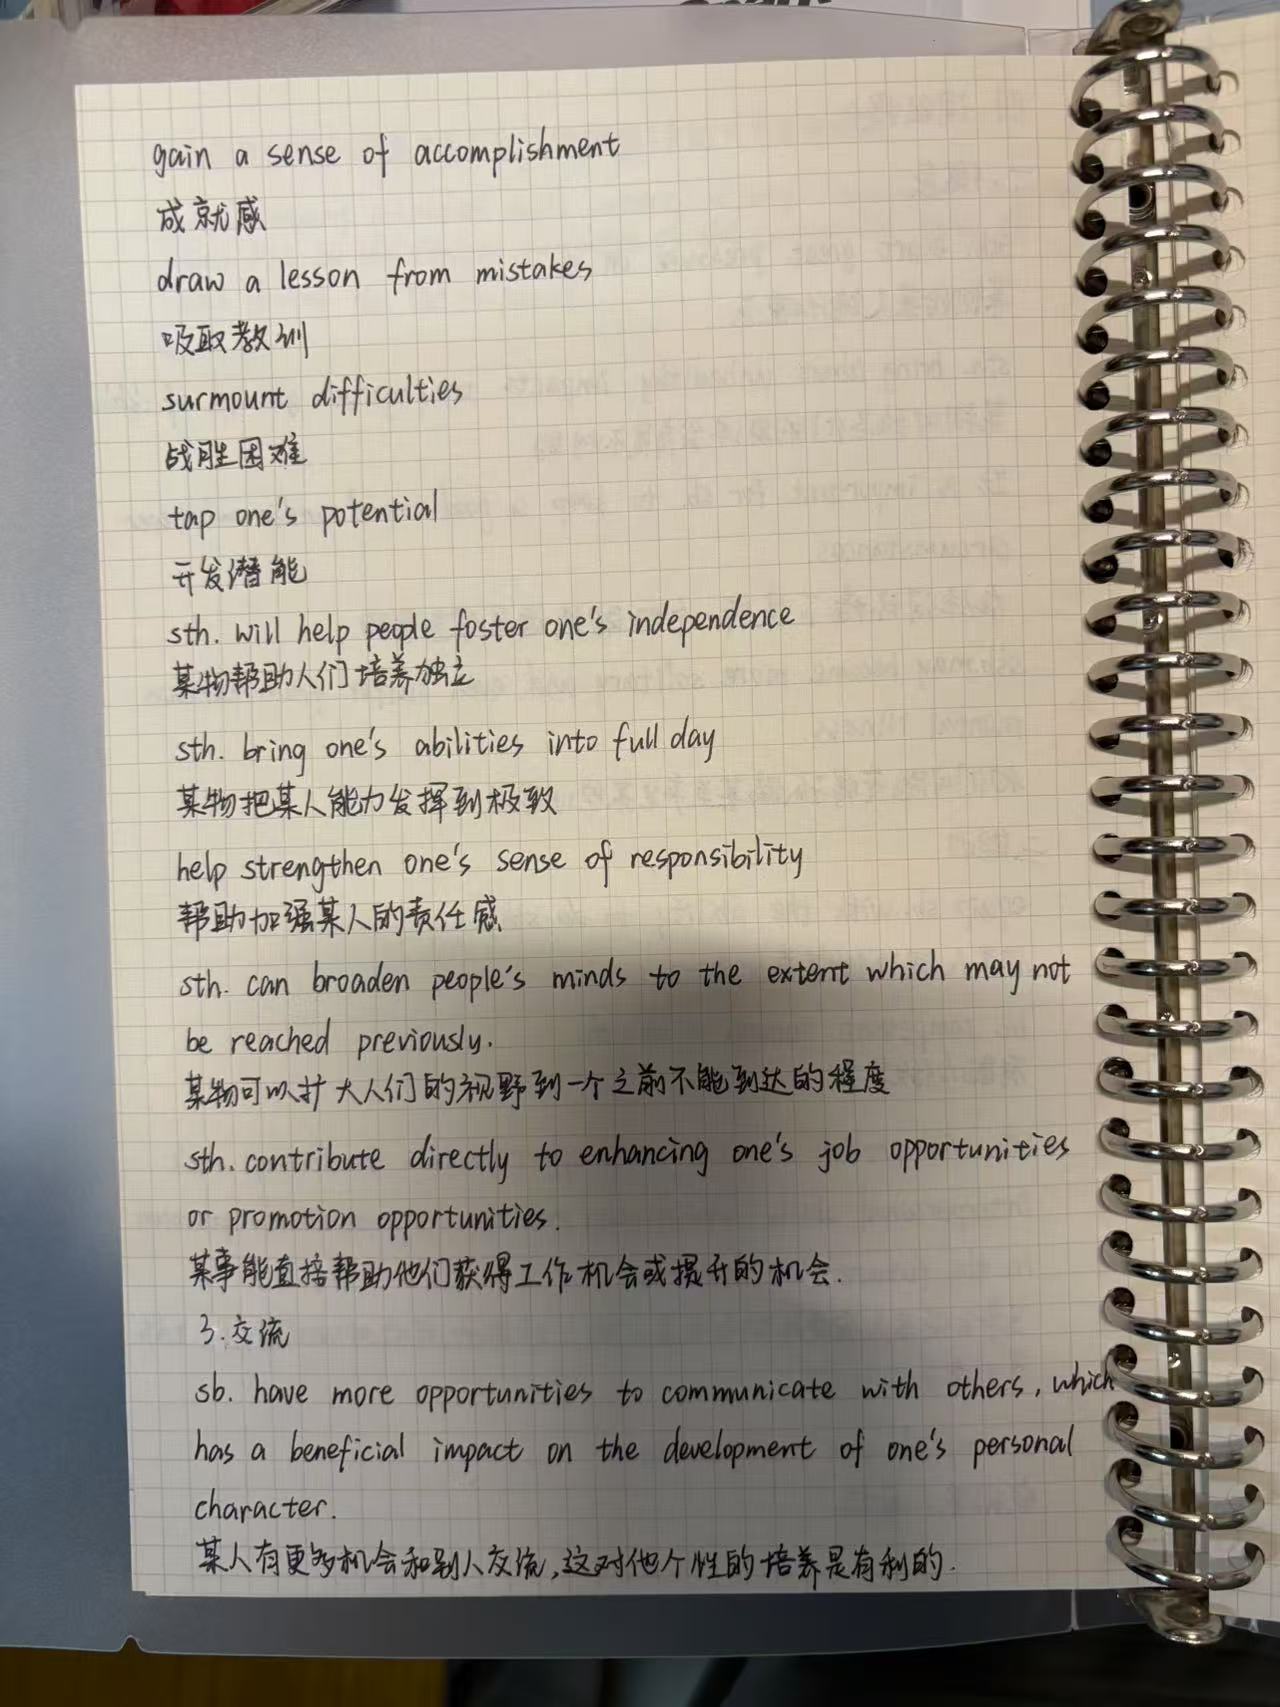 gain a sense of accomplishment
成就感
draw a lesson from mistakes
吸取教训
surmount difficulties
战胜困难
tap one's potential
开发潜能
sth. will help people foster one's independence
某物帮助人们培养独立
sth. bring one's abilities into full day
某物把某人能力发挥到极致
help strengthen one's sense of responsibility
帮助加强某人的责任感
sth. can broaden people's minds to the extent which may not
be reached previously.
某物可以扩大人们的视野到一个之前不能到达的程度
sth. contribute directly to enhancing one's job opportunities
or promotion opportunities.
某事能直接帮助他们获得工作机会或提升的机会.
3.交流
sb. have more opportunities to communicate with others, which
has a beneficial impact on the development of one's personal
character.
某人有更多机会和别人交流,这对他个性的培养是有利的.